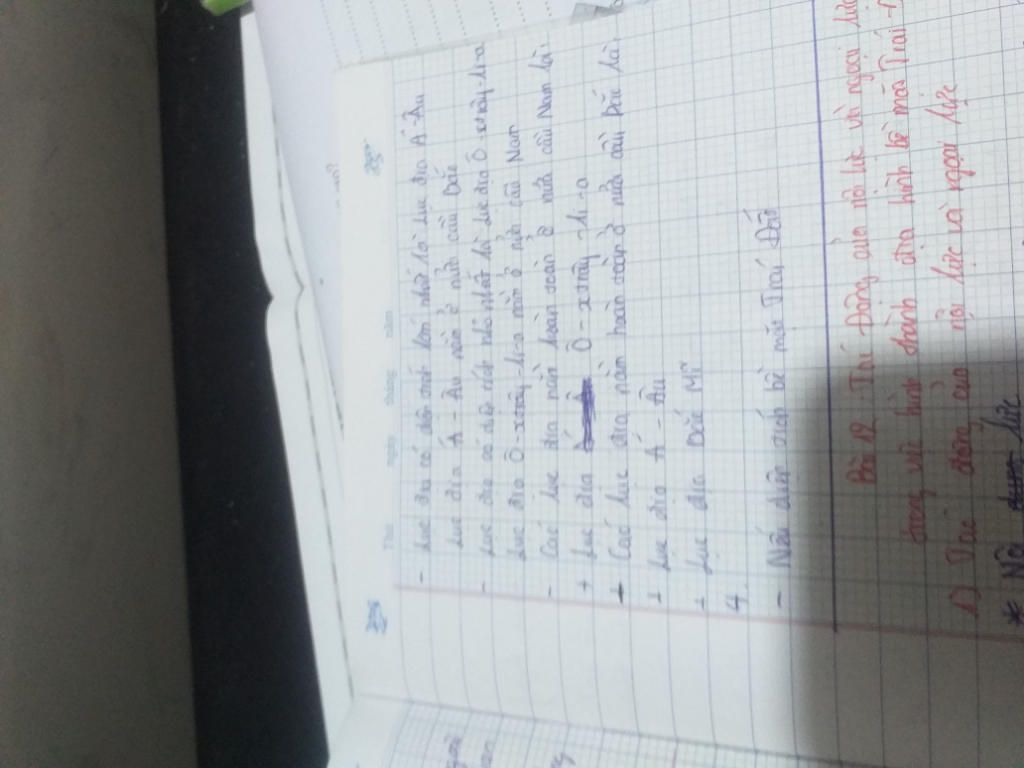 Thứ ngày tháng năm
- Lục địa có diện tích lớn nhất là lục địa Á - Âu
Lục địa Á - Âu nằm ở nửa cầu Bắc
- Lục địa có diện tích nhỏ nhất là lục địa Ô-xtrây-li-a
Lục địa Ô-xtrây-li-a nằm ở nửa cầu Nam
- Các lục địa nằm hoàn toàn ở nửa cầu Nam là:
+ Lục địa Ô-xtrây-li-a
+ Các lục địa nằm hoàn toàn ở nửa cầu Bắc là:
+ Lục địa Á - Âu
+ Lục địa Bắc Mĩ
4.
- Nếu diện tích bề mặt Trái Đất
Bài 12 Tác động của nội lực và ngoại lực
trong việc hình thành địa hình bề mặt Trái
1) Tác động của nội lực và ngoại lực
* Nội lực